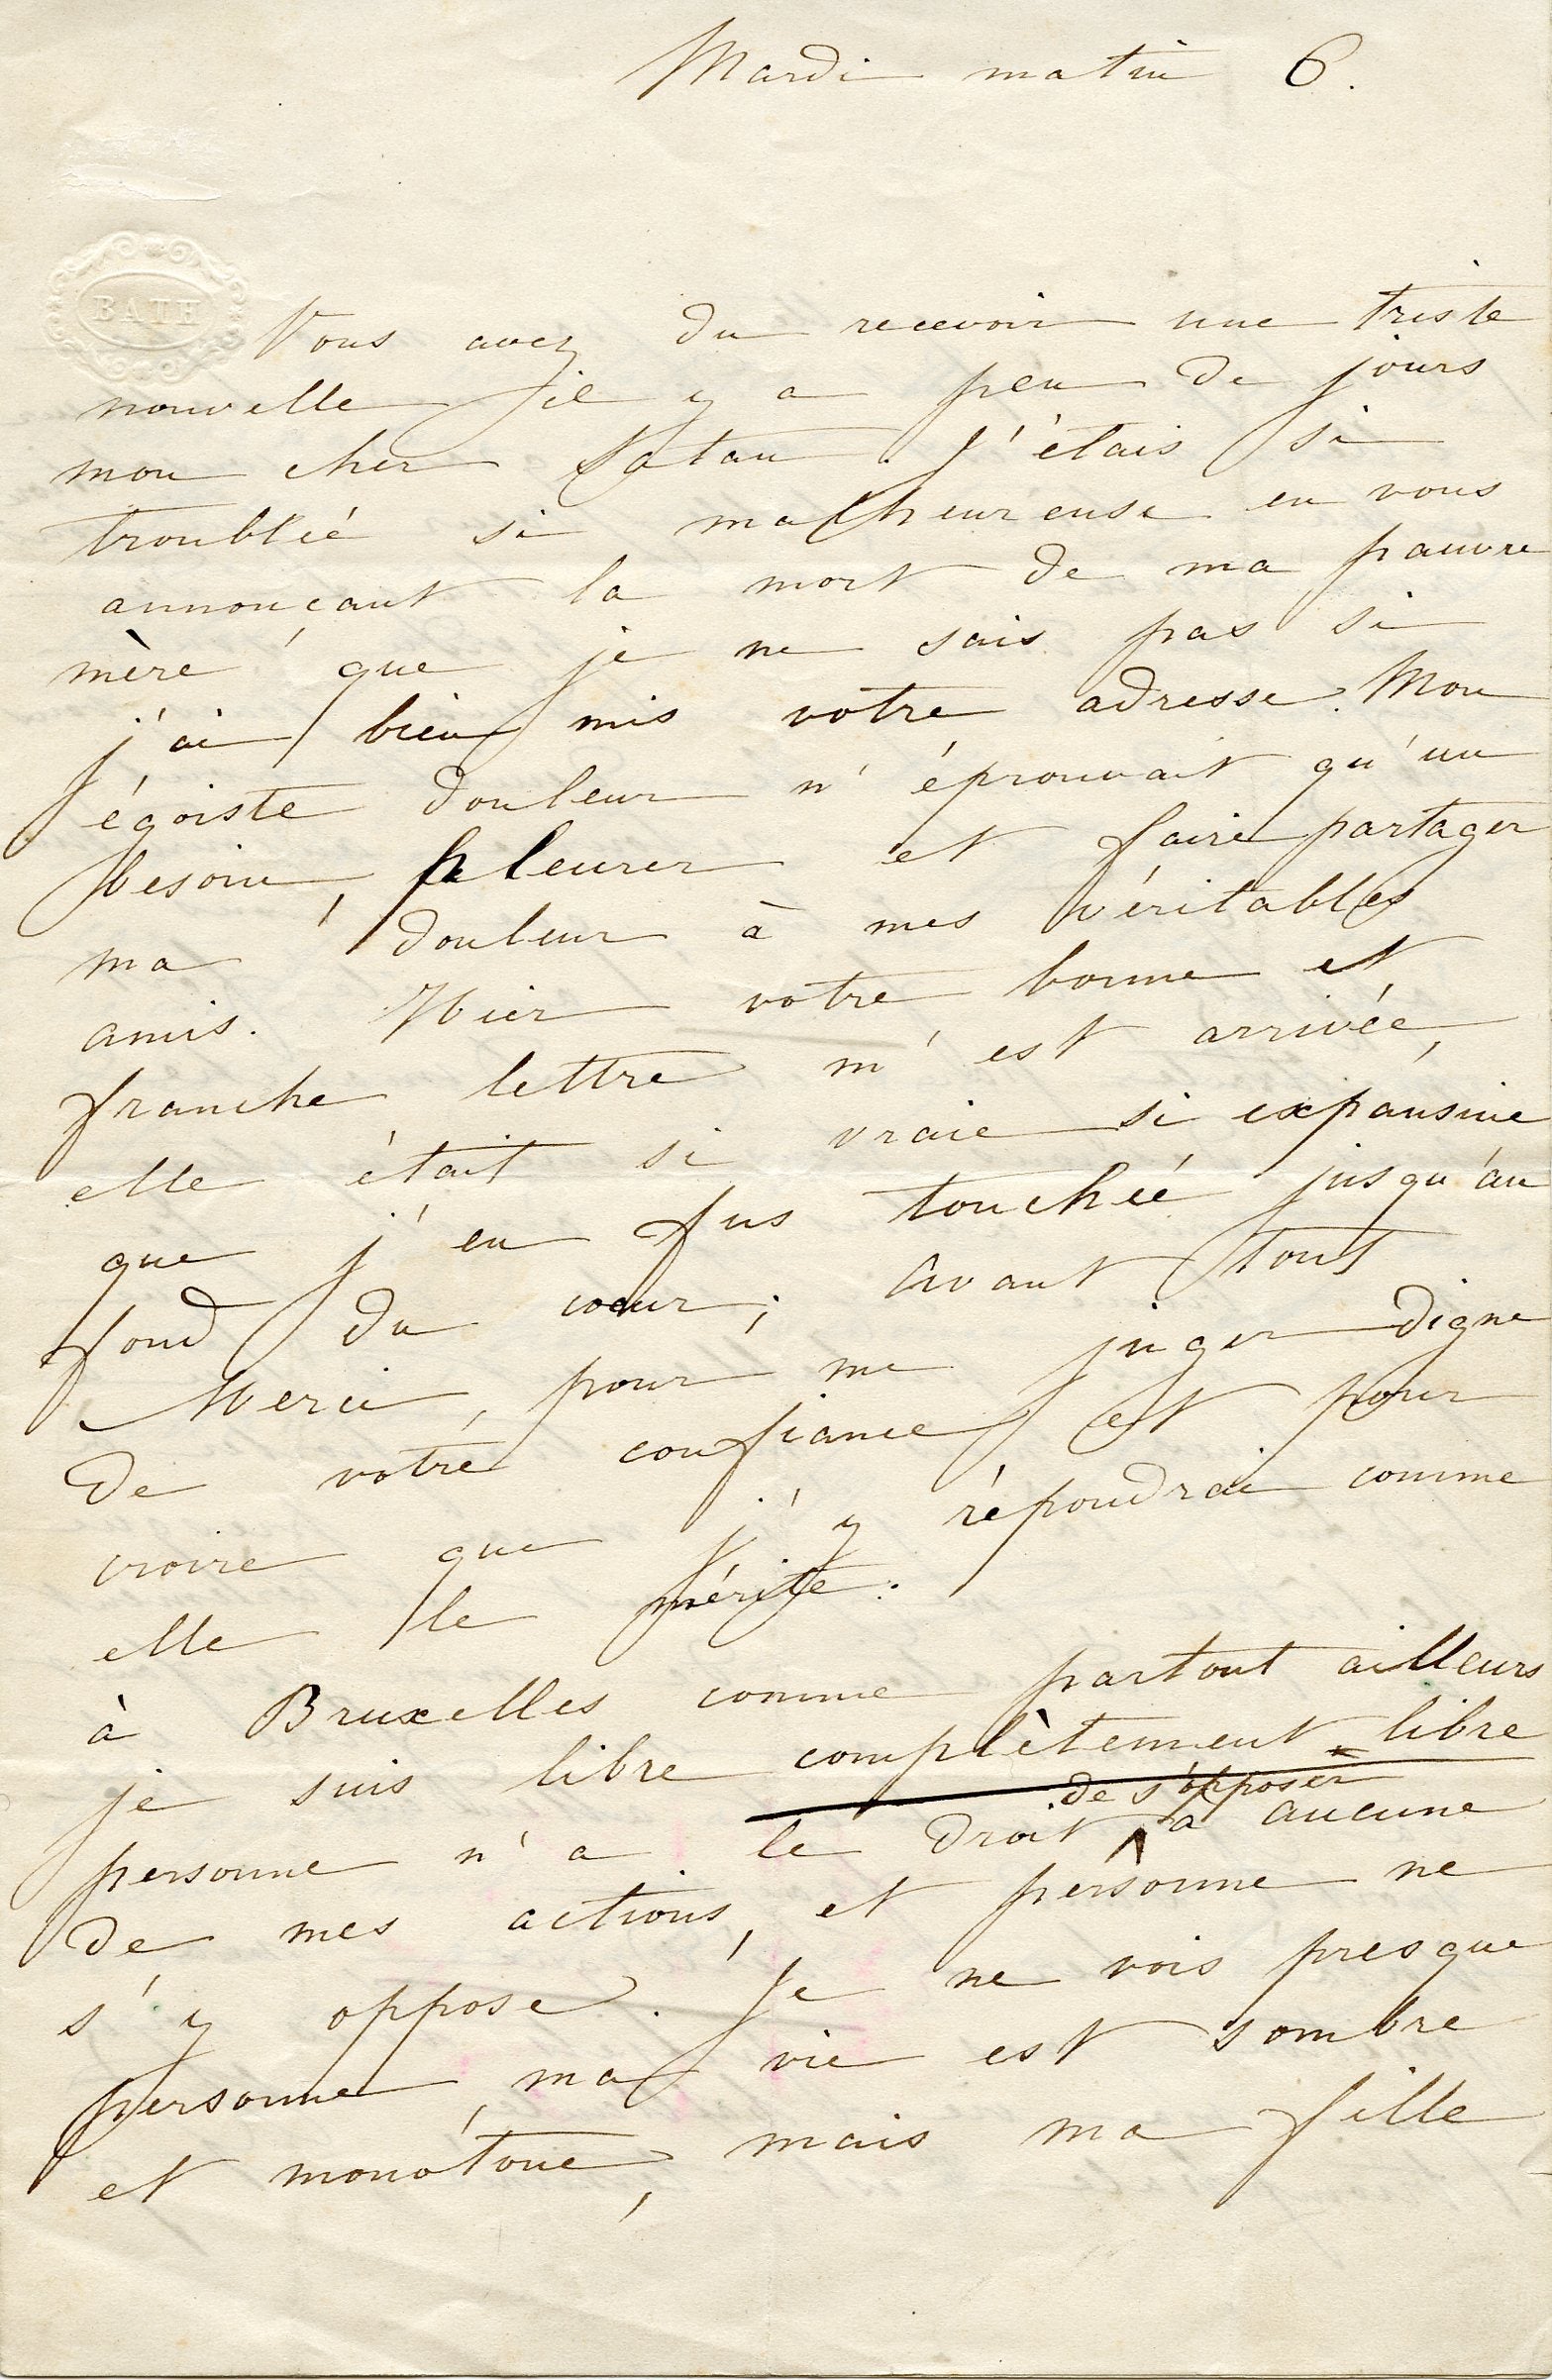 Mardi matin 6.
BATH
Vous avez du recevoir une triste
nouvelle il y a peu de jours
mon cher Satan. J'étais si
troubléé si malheureuse en vous
annonçant la mort de ma pauvre
mère que je ne sais pas si
j'ai bien mis votre adresse. Mon
égoiste douleur n'éprouvait qu'un
besoin, pleurer et faire partager
ma douleur à mes véritables
amis. Hier votre bonne et
franche lettre m'est arrivée,
elle était si vraie si expansive
que j'en fus touchéé jusqu'au
fond du coeur; avant tout
Merci, pour me juger digne
de votre confiance et pour
croire que j'y répondrai comme
elle le mérite.
à Bruxelles comme partout ailleurs
je suis libre complètement libre
de s'opposer
personne n'a le droit à aucune
de mes actions, et personne ne
s'y oppose. Je ne vois presque
personne, ma vie est sombre
et monotone, mais ma fille